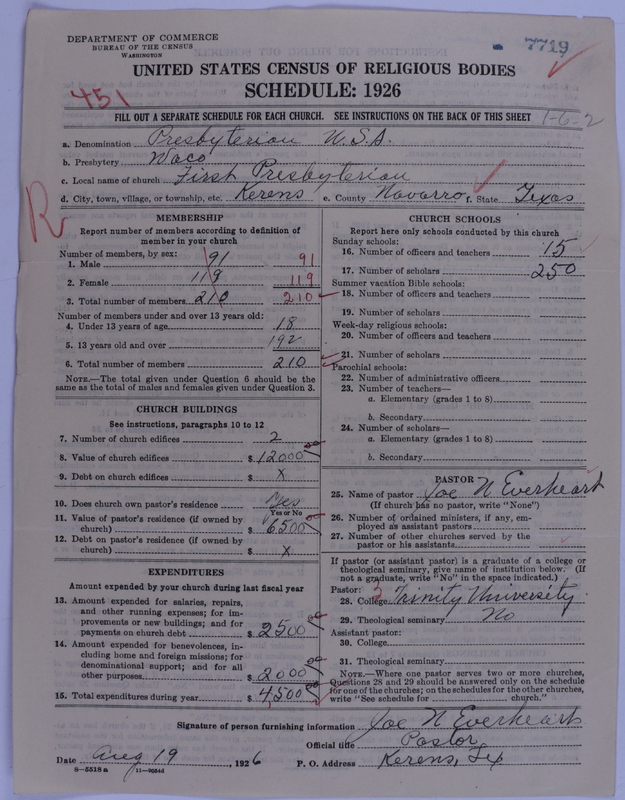 DEPARTMENT OF COMMERCE
BUREAU OF THE CENSUS
WASHINGTON
7719
UNITED STATES CENSUS OF RELIGIOUS BODIES
SCHEDULE: 1926
451
FILL OUT A SEPARATE SCHEDULE FOR EACH CHURCH. SEE INSTRUCTIONS ON THE BACK OF THIS SHEET
1-6-2
a. Denomination Presbyterian U.S.A.
b. Presbytery Waco
c. Local name of church First Presbyterian
d. City, town, village, or township, etc. Kerens e. County Navarro f. State Texas
R
MEMBERSHIP
Report number of members according to definition of member in your church
Number of members, by sex:
1. Male 91 91
2. Female 119 119
3. Total number of members 210 210
Number of members under and over 13 years old:
4. Under 13 years of age 18
5. 13 years old and over 192
6. Total number of members 210
NOTE.—The total given under Question 6 should be the same as the total of males and females given under Question 3.
CHURCH BUILDINGS
See instructions, paragraphs 10 to 12
7. Number of church edifices 2
8. Value of church edifices $ 12000 00
9. Debt on church edifices $ x
10. Does church own pastor's residence Yes
Yes or No
11. Value of pastor's residence (if owned by church) $ 6500 00
12. Debt on pastor's residence (if owned by church) $ x
EXPENDITURES
Amount expended by your church during last fiscal year
13. Amount expended for salaries, repairs, and other running expenses; for improvements or new buildings; and for payments on church debt $ 2500 00
14. Amount expended for benevolences, including home and foreign missions; for denominational support; and for all other purposes $ 2000 00
15. Total expenditures during year $ 4,500 00
CHURCH SCHOOLS
Report here only schools conducted by this church
Sunday schools:
16. Number of officers and teachers 15
17. Number of scholars 250
Summer vacation Bible schools:
18. Number of officers and teachers
19. Number of scholars
Week-day religious schools:
20. Number of officers and teachers
21. Number of scholars
Parochial schools:
22. Number of administrative officers
23. Number of teachers—
a. Elementary (grades 1 to 8)
b. Secondary
24. Number of scholars—
a. Elementary (grades 1 to 8)
b. Secondary
PASTOR
25. Name of pastor Joe N Everheart
(If church has no pastor, write "None")
26. Number of ordained ministers, if any, employed as assistant pastors
27. Number of other churches served by the pastor or his assistants
If pastor (or assistant pastor) is a graduate of a college or theological seminary, give name of institution below. (If not a graduate, write "No" in the space indicated.)
Pastor:
28. College Trinity University
29. Theological seminary No
Assistant pastor:
30. College
31. Theological seminary
NOTE.—Where one pastor serves two or more churches, Questions 28 and 29 should be answered only on the schedule for one of the churches; on the schedules for the other churches, write "See schedule for church."
Signature of person furnishing information Joe N Everheart
Official title Pastor
Date Aug 19, 1926 P. O. Address Kerens, Tex
8—5518 a